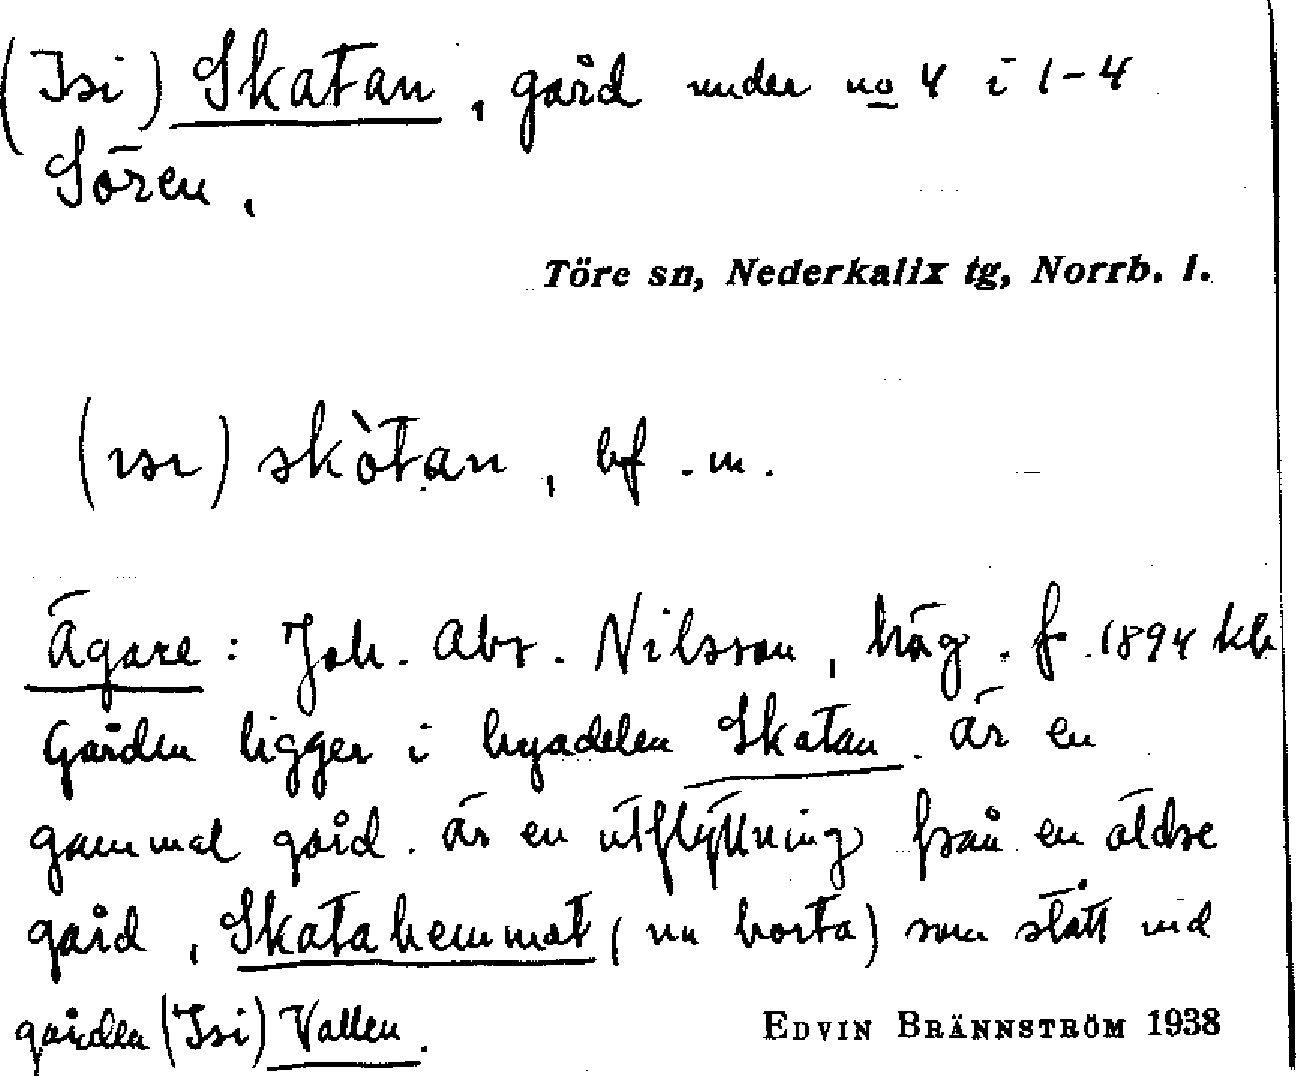 (Isi) Skatan, gård under no 4 i 1-4
Sören.
Töre sn, Nederkalix tg, Norrb. l.
(ɪsɪ) skòtan, bf. m.
Ägare: Joh. Abr. Nilsson, häg. f. 1894 klx
Gården ligger i byadelen Skatan. Är en
gammal gård. Är en utflyttning från en äldre
gård, Skatahemmat (nu borta) som stått vid
gården (Isi) Vallen.
EDVIN BRÄNNSTRÖM 1938